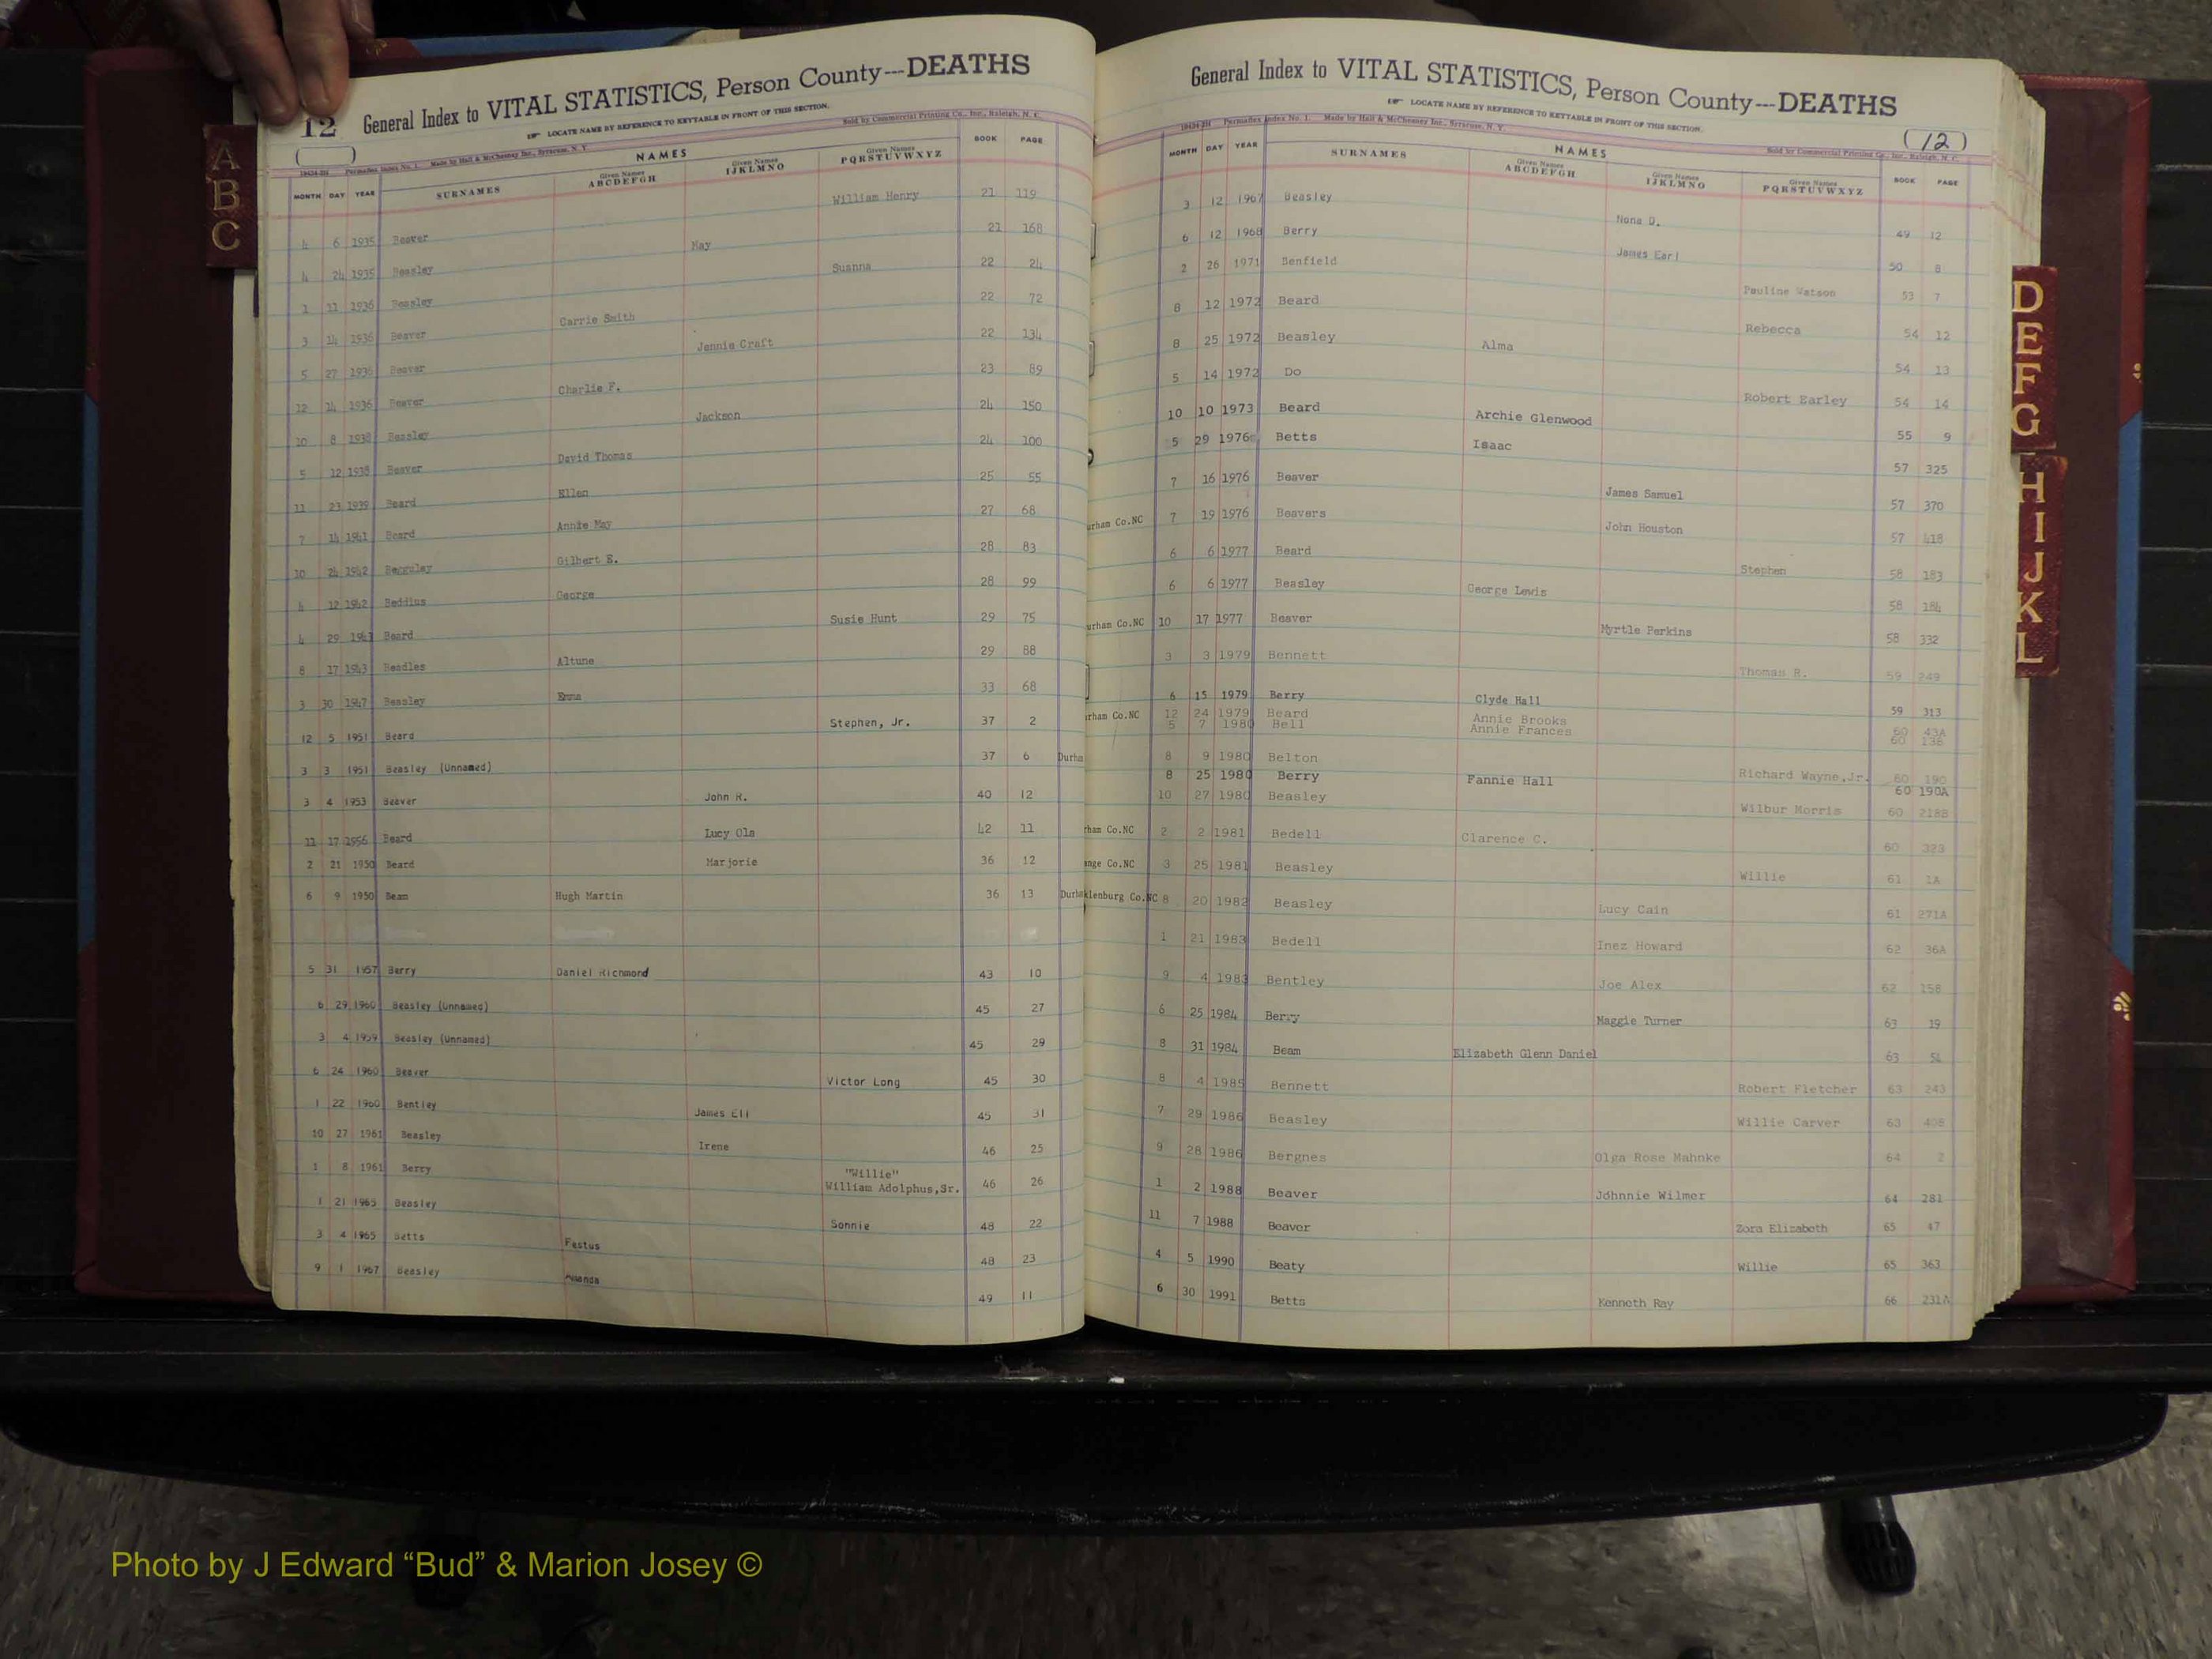 A
B
C
12
General Index to VITAL STATISTICS, Person County---DEATHS
LOCATE NAME BY REFERENCE TO KEYTABLE IN FRONT OF THIS SECTION.
Made by Hall & McChesney Inc., Syracuse, N. Y.
Sold by Commercial Printing Co., Inc., Raleigh, N. C.
NAMES
MONTH DAY YEAR SURNAMES Given Names ABCDEFGH Given Names IJKLMNO Given Names PQRSTUVWXYZ BOOK PAGE
4 6 1935 Beaver William Henry 21 119
4 24 1935 Beasley May 21 168
1 11 1936 Beasley Suanna 22 24
3 14 1936 Beaver Carrie Smith 22 72
5 27 1936 Beaver Jennie Craft 22 134
12 14 1936 Beaver Charlie F. 23 89
10 8 1938 Beasley Jackson 24 150
5 12 1938 Beaver David Thomas 24 100
11 23 1939 Beard Ellen 25 55
7 14 1941 Beard Annie May 27 68
10 24 1942 Gilbert E. 28 83
4 12 1942 Beddius George 28 99
4 29 1943 Beard Susie Hunt 29 75
8 17 1943 Beadles Altune 29 88
3 30 1947 Beasley Emma 33 68
12 5 1951 Beard Stephen, Jr. 37 2
3 3 1951 Beasley (Unnamed) 37 6
3 4 1953 Beaver John R. 40 12
11 17 1956 Beard Lucy Ola 42 11
2 21 1950 Beard Marjorie 36 12
6 9 1950 Beam Hugh Martin 36 13
5 31 1957 Berry Daniel Richmond 43 10
6 29 1960 Beasley (Unnamed) 45 27
3 4 1959 Beasley (Unnamed) 45 29
6 24 1960 Beaver Victor Long 45 30
1 22 1960 Bentley James Eli 45 31
10 27 1961 Beasley Irene 46 25
1 8 1961 Berry "Willie"
William Adolphus,Sr. 46 26
1 21 1965 Beasley Sonnie 48 22
3 4 1965 Betts Festus 48 23
9 1 1967 Beasley Amanda 49 11
General Index to VITAL STATISTICS, Person County---DEATHS
LOCATE NAME BY REFERENCE TO KEYTABLE IN FRONT OF THIS SECTION.
(12)
Made by Hall & McChesney Inc., Syracuse, N. Y.
Sold by Commercial Printing Co., Inc., Raleigh, N. C.
NAMES
MONTH DAY YEAR SURNAMES Given Names ABCDEFGH Given Names IJKLMNO Given Names PQRSTUVWXYZ BOOK PAGE
3 12 1967 Beasley Nona D. 49 12
6 12 1968 Berry James Earl 50 8
2 26 1971 Benfield Pauline Watson 53 7
8 12 1972 Beard Rebecca 54 12
8 25 1972 Beasley Alma 54 13
5 14 1972 Do Robert Earley 54 14
10 10 1973 Beard Archie Glenwood 55 9
5 29 1976 Betts Isaac 57 325
7 16 1976 Beaver James Samuel 57 370
urham Co.NC 7 19 1976 Beavers John Houston 57 418
6 6 1977 Beard Stephen 58 183
6 6 1977 Beasley George Lewis 58 184
urham Co.NC 10 17 1977 Beaver Myrtle Perkins 58 332
3 3 1979 Bennett Thomas R. 59 249
6 15 1979 Berry Clyde Hall 59 313
rham Co.NC 12 24 1979 Beard Annie Brooks 60 43A
5 7 1980 Bell Annie Frances 60 136
Durha 8 9 1980 Belton Richard Wayne,Jr. 60 190
8 25 1980 Berry Fannie Hall 60 190A
10 27 1980 Beasley Wilbur Morris 60 218B
rham Co.NC 2 2 1981 Bedell Clarence C. 60 323
ange Co.NC 3 25 1981 Beasley Willie 61 1A
Durha klenburg Co.NC 8 20 1982 Beasley Lucy Cain 61 271A
1 21 1983 Bedell Inez Howard 62 36A
9 4 1983 Bentley Joe Alex 62 158
6 25 1984 Berry Maggie Turner 63 19
8 31 1984 Beam Elizabeth Glenn Daniel 63 54
8 4 1985 Bennett Robert Fletcher 63 243
7 29 1986 Beasley Willie Carver 63
9 28 1986 Bergnes Olga Rose Mahnke 64 2
1 2 1988 Beaver Johnnie Wilmer 64 281
11 7 1988 Beaver Zora Elizabeth 65 47
4 5 1990 Beaty Willie 65 363
6 30 1991 Betts Kenneth Ray 66 231A
D
E
F
G
H
I
J
K
L
Photo by J Edward “Bud” & Marion Josey ©